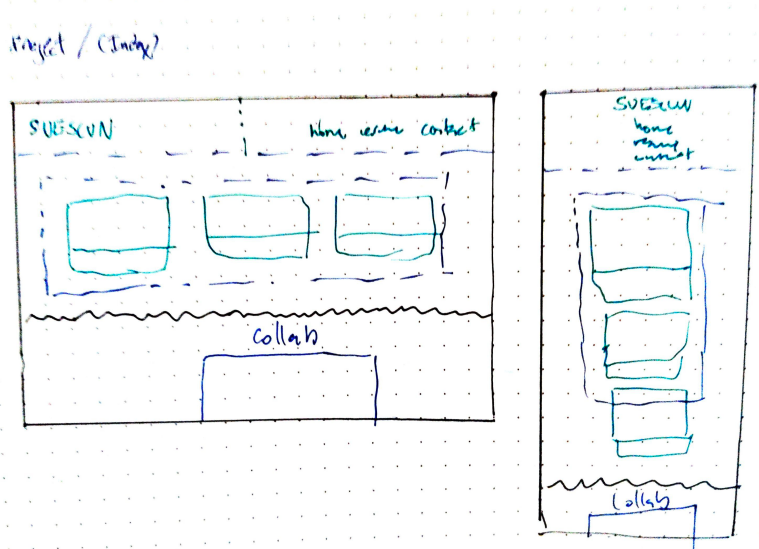 Project / (Index)
SVESCUN
home resume contact
Collab
SVESCUN
home
resume
contact
Collab